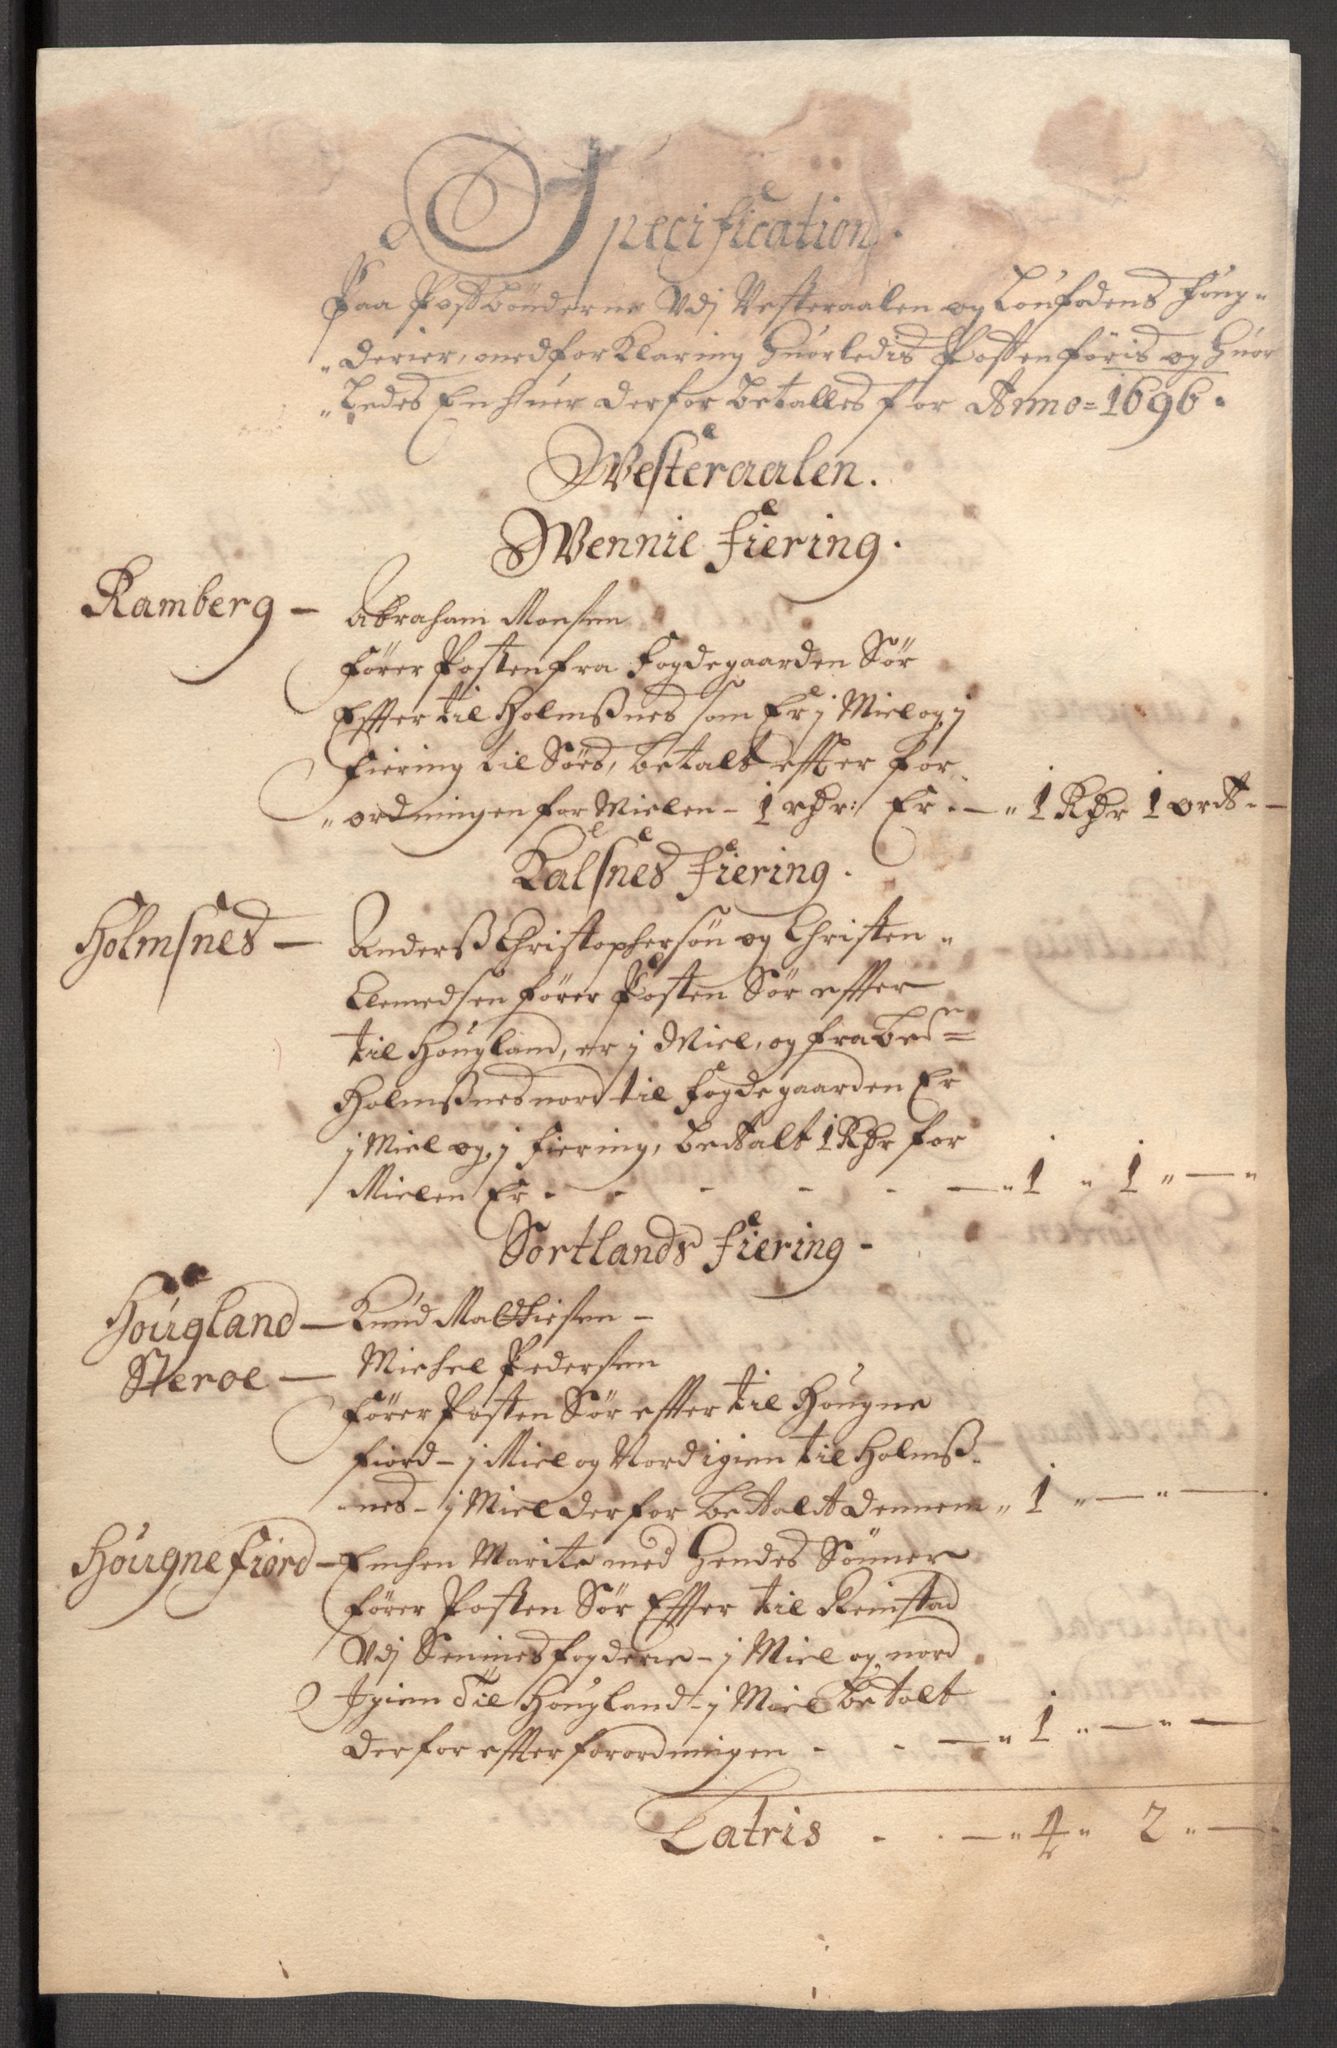 Specification.
Paa Postbønderne Vdj Vesteraalen og Loufodens foug-
derier, med forklaring huorledis Posten føris og huor
Ledes Enhuer derfor betalles for Anno= 1696.
Westeraalen.
Wennie fiering.
Ramberg — Abraham Monsen
fører Posten fra fogdegaarden Sør
Effter til Holmßnes som Er j Miel og j
fiering til Søes, betalt effter for-
ordningen for Mielen - 1 rdr: Er. — " 1 Rdr 1 ort. —
Kalsnes fiering.
Holmsnes — Anderß Christophersøn og Christen
Clemedsen fører Posten Sør effter
til Hougland, er j Miel, og fra bedn=
Holmßnes nord til fogdegaarden Er
j Miel og j fiering, bettalt 1 Rdr for
Mielen Er . - - - - — " 1 " 1 " — "
Sortlands fiering -
Hougland — Knud Matthiesen -
Steroe — Michel Pedersen
fører Posten Sør effter til Hougne
fiord - j Miel og Nord igien til Holmß-
nes - j Miel derfor bettalt dennem " 1 " — " —
Hougnefiord — Enchen Marite med hendes Sønner
fører Posten Sør Effter til Reinstad
Vdj Senniens fogderie - j Miel og nord
Igien Til Hougland - j Miel betalt
derfor effter forordningen - - — " 1 " — " —
Latris - . — " 4 " 2 " —